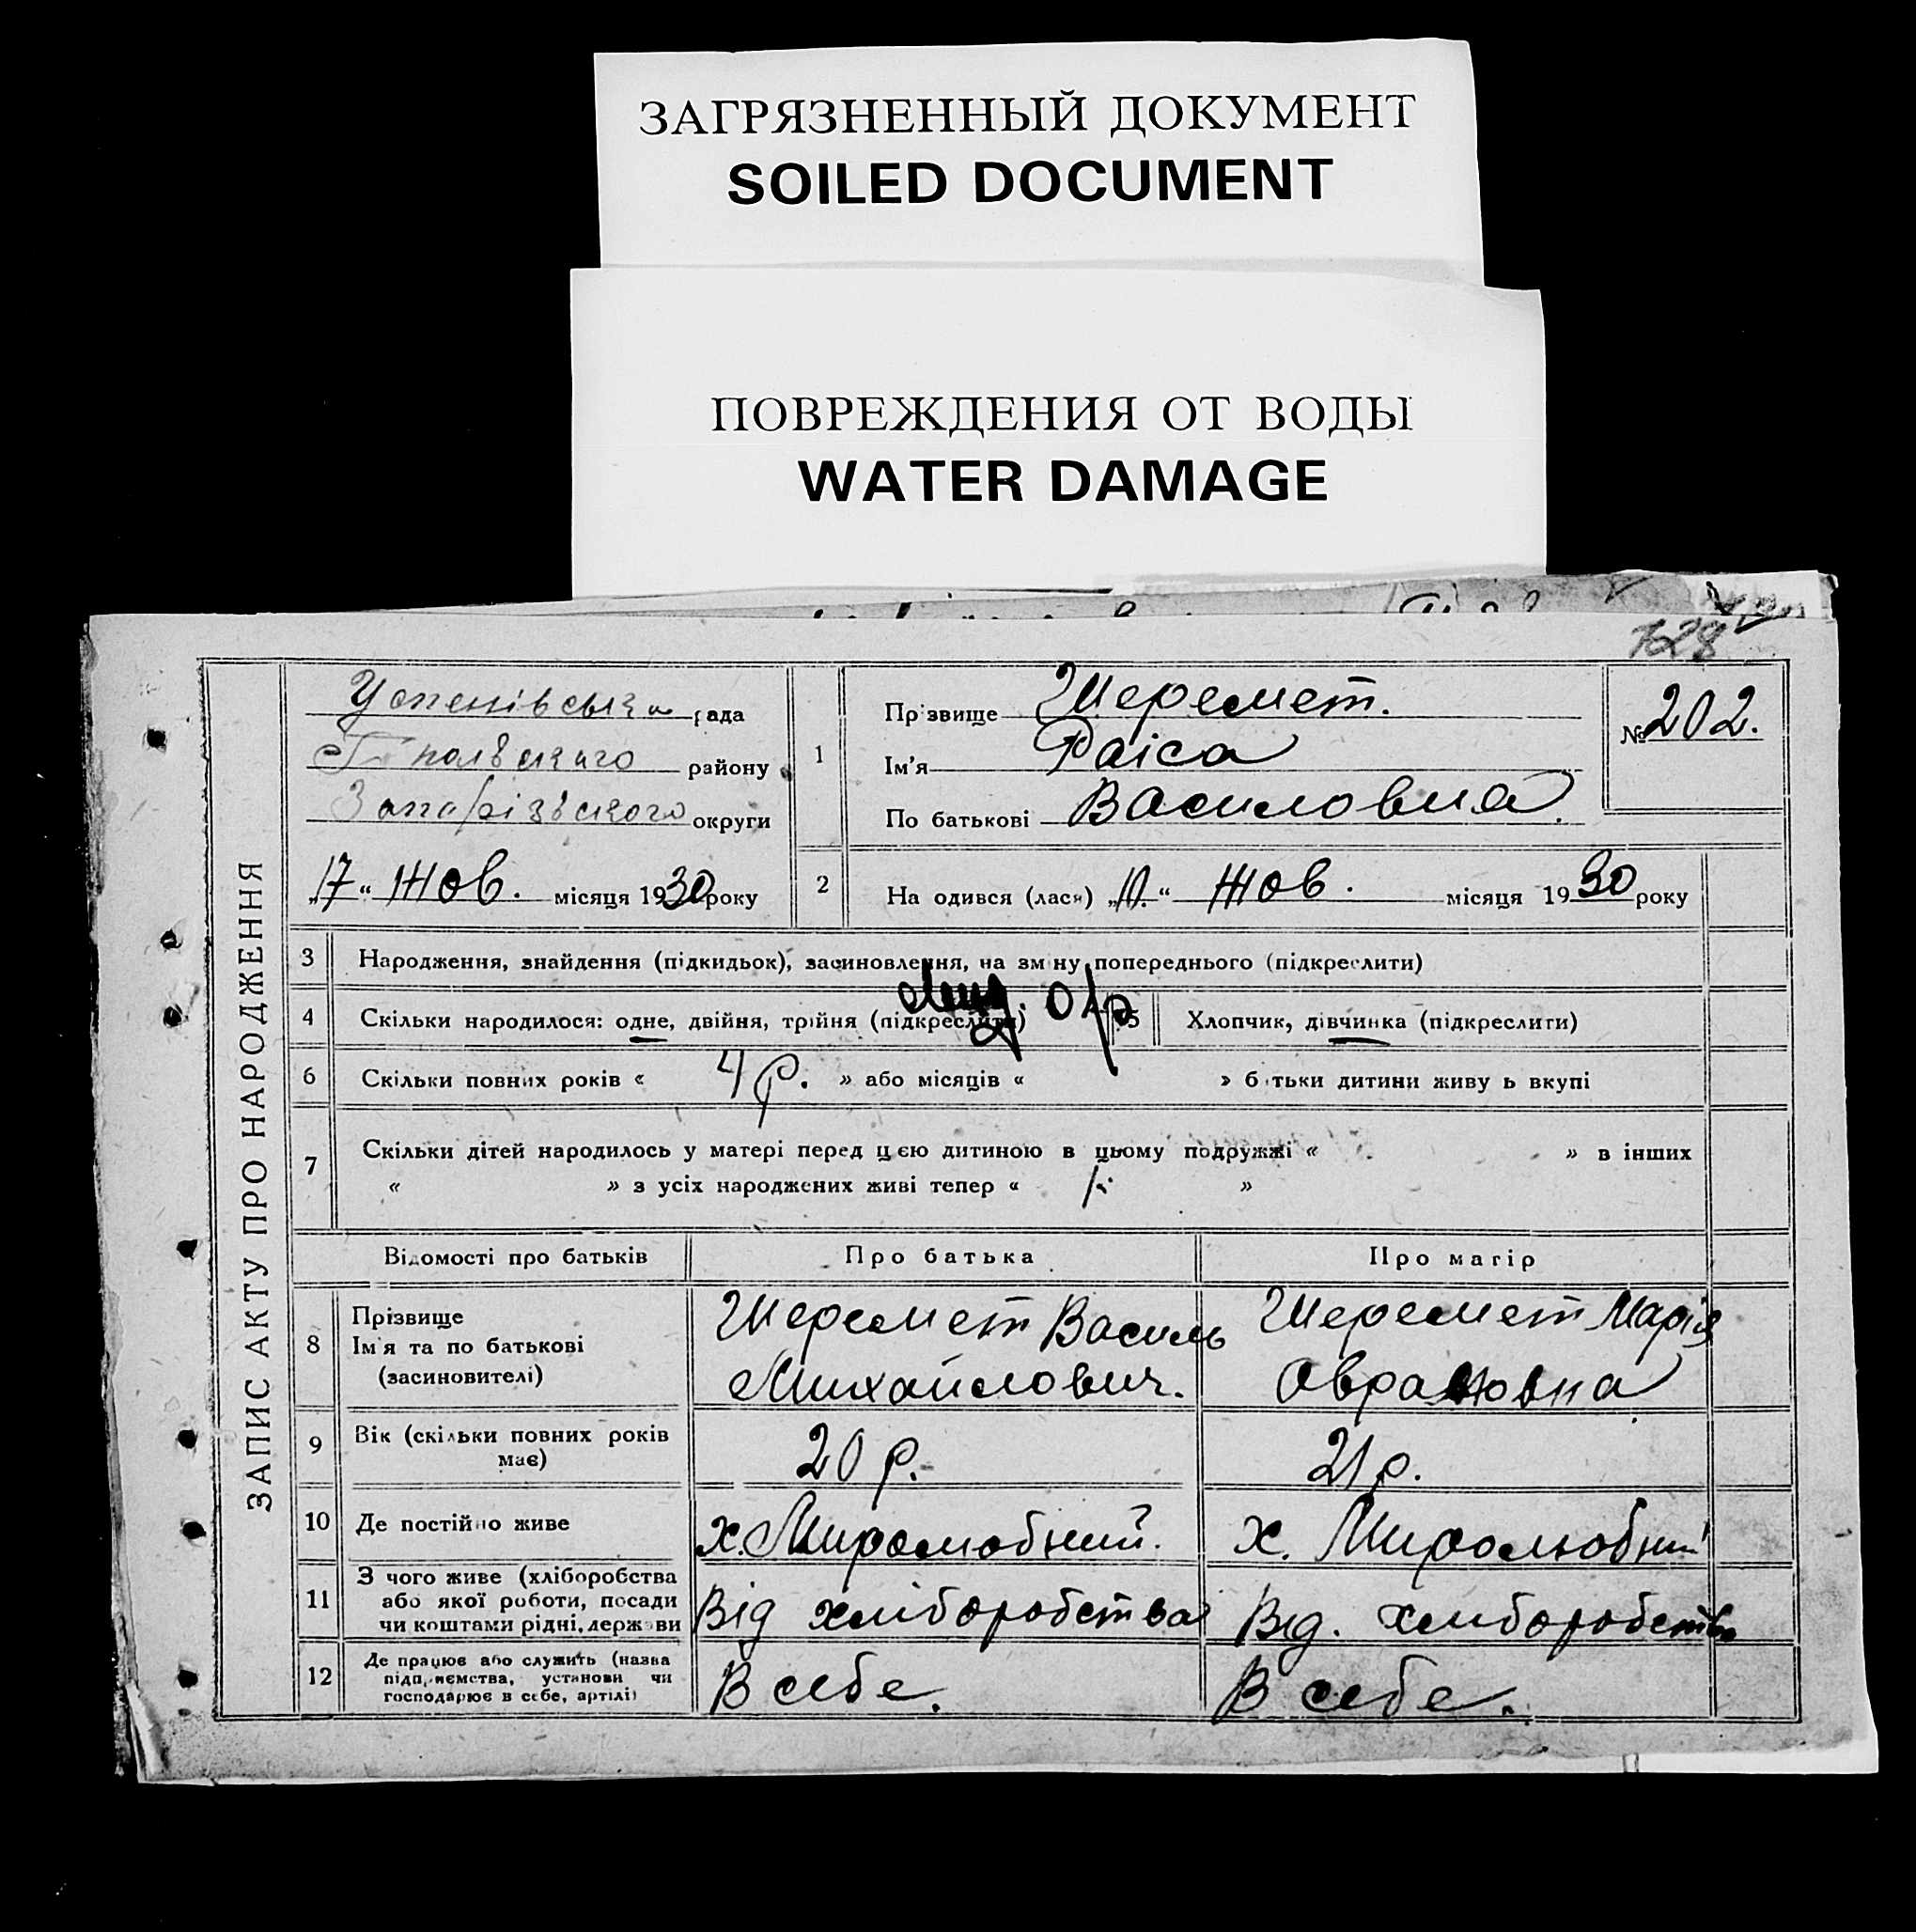 ЗАГРЯЗНЕННЫЙ ДОКУМЕНТ
SOILED DOCUMENT
ПОВРЕЖДЕНИЯ ОТ ВОДЫ
WATER DAMAGE
128
ЗАПИС АКТУ ПРО НАРОДЖЕННЯ
Успенівська рада
району
Запорізького округи
„17“ Жов. місяця 1930 року
1
Прізвище Шеремет.
Ім'я Раіса
По батькові Василовна.
№ 202.
2 На одився (лася) „10.“ Жов. місяця 1930 року
3 Народження, знайдення (підкидьок), засиновлення, на зміну попереднього (підкреслити)
4 Скільки народилося: одне, двійня, трійня (підкреслити)
5 Хлопчик, дівчинка (підкреслити)
6 Скільки повних років « 4 р. » або місяців « » батьки дитини живу ь вкупі
7 Скільки дітей народилось у матері перед цією дитиною в цьому подружжі « » в інших
« » з усіх народжених живі тепер « »
Відомості про батьків Про батька Про матір
8 Прізвище
Ім'я та по батькові
(засиновителі)
Шеремет Василь
Михайлович.
Шеремет Марія
Аврамовна
9 Вік (скільки повних років
має)
20 р. 21 р.
10 Де постійно живе х. Миролюбний. х. Миролюбний
11 З чого живе (хліборобства
або якої роботи, посади
чи коштами рідні, держави
Від хліборобства Від. хліборобства
12 Де працює або служить (назва
підприємства, установи чи
господарює в себе, артілі)
В себе. В себе.